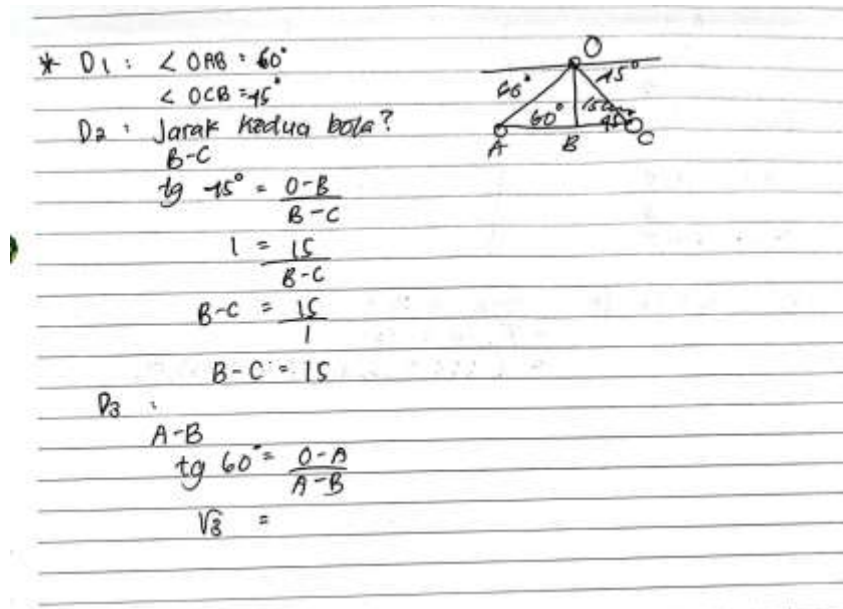 * D1 : ∠ OAB = 60°
∠ OCB = 45°
D2 : Jarak kedua bola?
B-C
tg 45° = O-B / B-C
1 = 15 / B-C
B-C = 15 / 1
B-C = 15
D3 :
A-B
tg 60° = O-A / A-B
√3 =
O
60° 45°
60° 15cm 45°
A B C